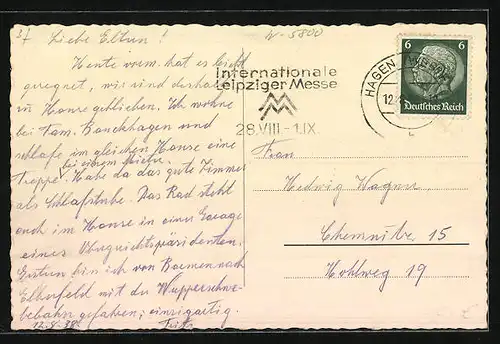 37
W-5800
Liebe Eltern!
Heute vorm. hat es leicht
geregnet, wir sind deshalb
zu Hause geblieben. Ich wohne
bei Fam. Banckhagen und
schlafe im gleichen Hause eine
Treppe bei einem
Habe da das gute Zimmer
als Schlafstube. Das Rad steht
auch im Hause in einer Garage
eines Obergerichtspräsidenten.
Gestern bin ich von Barmen nach
Elberfeld mit der Wupperschwe-
bebahn gefahren; einzigartig.
12.8.38. Fritz
Internationale
Leipziger Messe
MM
28.VIII-1.IX.
HAGEN
12.
6 6
Deutsches Reich
Frau
Hedwig Wagner
Chemnitz 15
Hohlweg 19